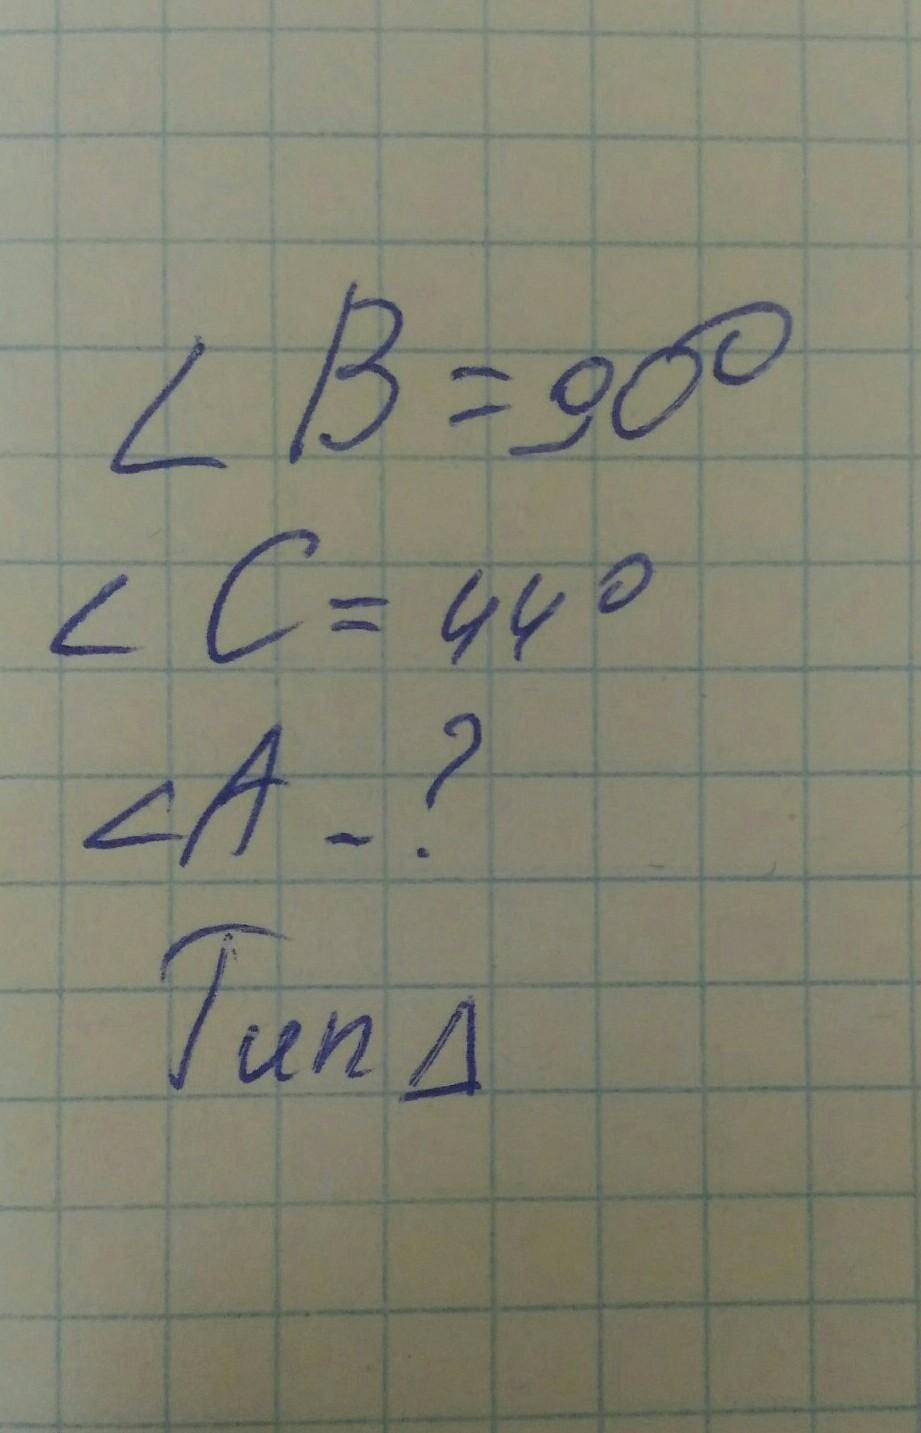 ∠ B = 90°
∠ C = 44°
∠ A - ?
Тип Δ